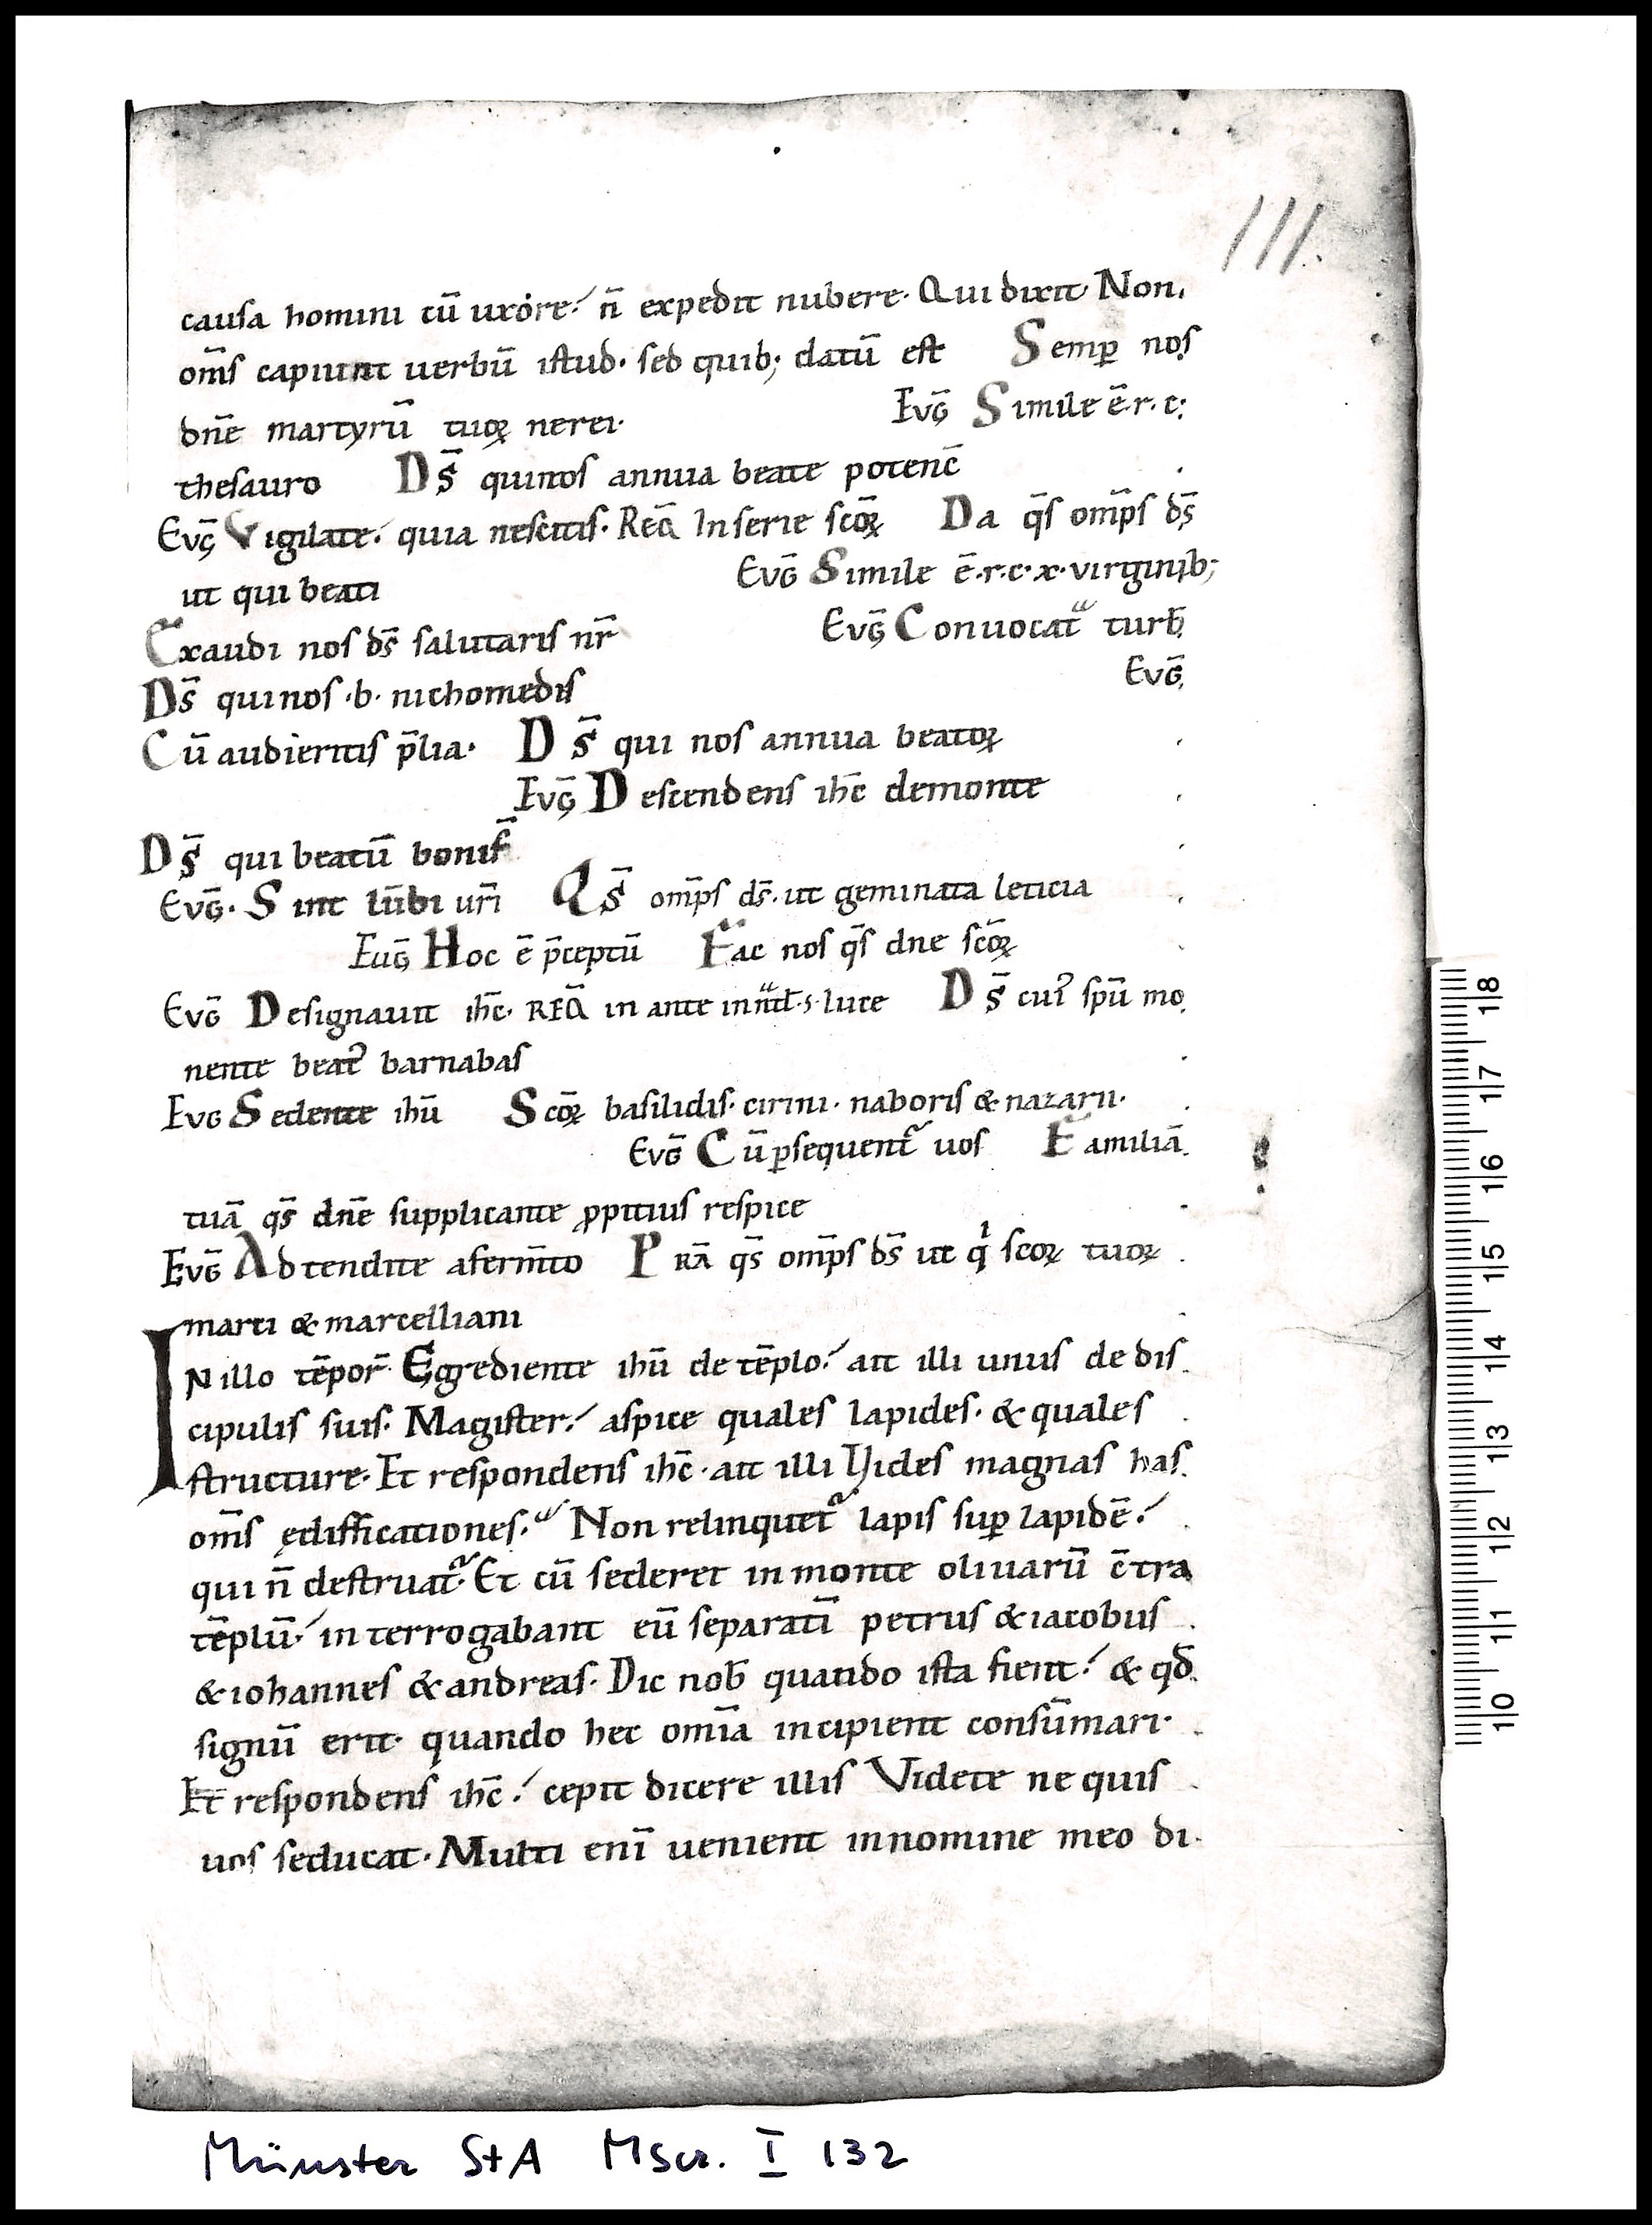 111.
causa homini cū uxore. n̄ expedit nubere. Qui dixit Non
om̄s capiunt uerbū istud. sed quib; datū est Semꝑ nos
dn̄e martyrū tuoꝝ nerei.
Evḡ Simile ē.r.c:
thesauro Ds̄ qui nos annua beate potenc̄
Evḡ Vigilate. quia nescitis. Req̄ In serie scōꝝ Da qs̄ omp̄s ds̄
ut qui beati
Evḡ Simile ē.r.c.x.virginib;
Exaudi nos ds̄ salutaris nr̄
Evḡ Conuocat turb̄
Ds̄ qui nos .b. nichomedis
Evḡ
Cū audieritis p̄lia. Ds̄ qui nos annua beatoꝝ
Evḡ Descendens ih̄c de monte
Ds̄ qui beatū bonif̄
Evḡ. Sint lūbi ur̄i Qs̄ omp̄s ds̄. ut geminata leticia
Euḡ Hoc ē p̄ceptū Fac nos qs̄ dne scōꝝ
Evḡ Designauit ih̄c. REQ̄ in ante luce Ds̄ cui᷒ spū mo
nente beat᷒ barnabas
Evg Sedente ihū Scōꝝ basilidis. cirini. naboris & nazarii.
Evḡ Cū ꝑsequent᷑ uos Familiā
tuā qs̄ dn̄e supplicante ꝓpitius respice
Evḡ Adtendite a ferm̄to PRĀ qs̄ omp̄s ds̄ ut qͥ scoꝝ tuoꝝ
marci & marcelliani
IN illo tēpor̄ Egrediente ihū de tēplo. ait illi unus de dis
cipulis suis. Magister. aspice quales lapides. & quales
structure. Et respondens ih̄c. ait illi Uides magnas has
om̄s ędifficationes. Non relinquet᷑ lapis suꝑ lapidē.
qui n̄ destruat᷑. Et cū sederet in monte oliuarū c̄tra
tēplū. interrogabant eū separatī petrus & iacobus
& iohannes & andreas. Dic nob̄ quando ista fient. & qd̄
signū erit. quando hec om̄ia incipient consūmari.
Et respondens ih̄c. cepit dicere illis Videte ne quis
uos seducat. Multi enī uenient in nomine meo di
1|8
1|7
1|6
1|5
1|4
1|3
1|2
1|1
1|0
Münster StA Mscr. I 132